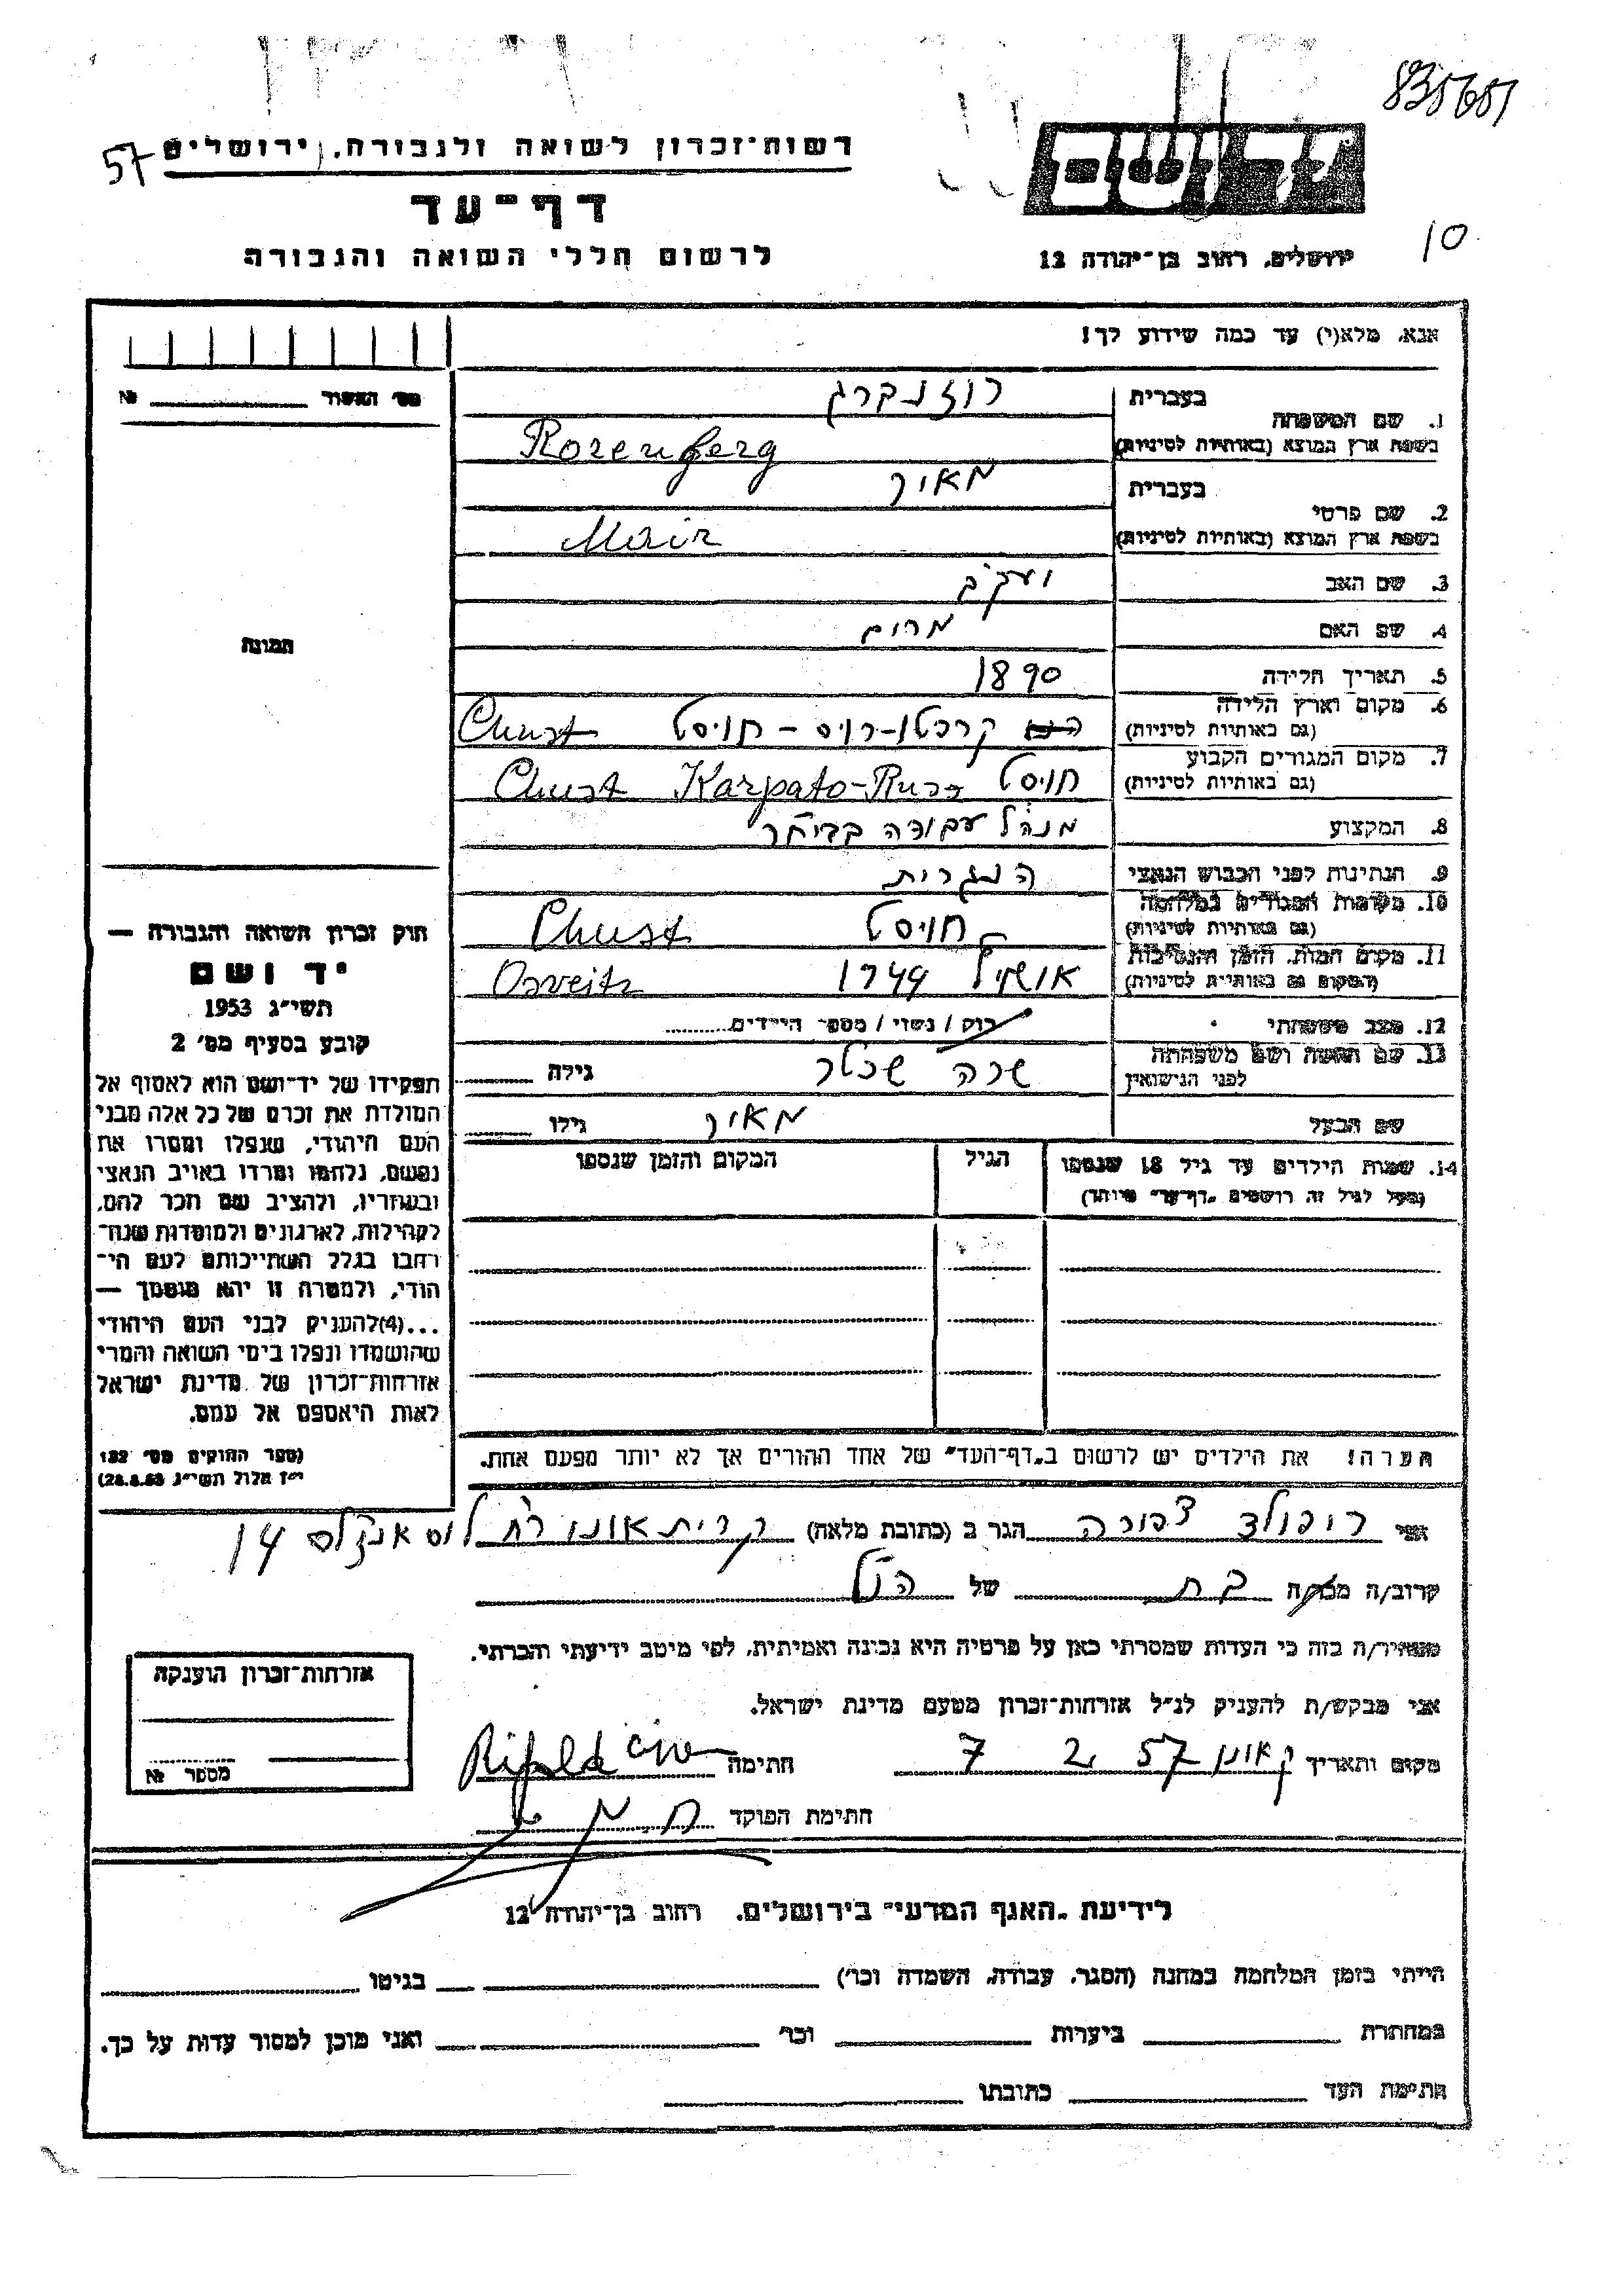 835651
57
רשות־זכרון לשואה ולגבורה, ירושלים
דף־עד
לרשום חללי השואה והגבורה
יד ושם
ירושלים, רחוב בן־יהודה 12
10
אנא, מלא(י) עד כמה שידוע לך!
מס׳ האשור № 
1. שם המשפחה
בעברית רוזנברג
בשפת ארץ המוצא (באותיות לטיניות) Rozenberg
2. שם פרטי
בעברית מאיר
בשפת ארץ המוצא (באותיות לטיניות) Mair
3. שם האב יעקב
4. שם האם מרים
5. תאריך הלידה 1890
6. מקום וארץ הלידה
(גם באותיות לטיניות) קרפטו-רוס - חוסט Chust
7. מקום המגורים הקבוע
(גם באותיות לטיניות) חוסט Chust Karpato-Russ
8. המקצוע מנהל עבודה ביער
9. הנתינות לפני הכבוש הנאצי הונגרית
10. מקומות המגורים במלחמה
(גם באותיות לטיניות) חוסט Chust
11. מקום המות, הזמן והנסיבות
(המקום גם באותיות לטיניות) 1944 Osveitz
12. מצב משפחתי רוק / נשוי / מספר הילדים
13. שם האשה ושם משפחתה
לפני הנישואין שרה שכטר גילה
שם הבעל מאיר גילו
14. שמות הילדים עד גיל 18 שנספו
(מעל לגיל זה רושמים „דף־עד״ מיוחד)
הגיל
המקום והזמן שנספו
הערה! את הילדים יש לרשום ב„דף־העד״ של אחד ההורים אך לא יותר מפעם אחת.
תמונה
חוק זכרון השואה והגבורה —
יד ושם
תשי״ג 1953
קובע בסעיף מס׳ 2
תפקידו של יד־ושם הוא לאסוף אל
המולדת את זכרם של כל אלה מבני
העם היהודי, שנפלו ומסרו את
נפשם, נלחמו ומרדו באויב הנאצי
ובעוזריו, ולהציב שם וזכר להם,
לקהילות, לארגונים ולמוסדות שנח־
רבו בגלל השתייכותם לעם הי־
הודי, ולמטרה זו יהא מוסמך —
...(4) להעניק לבני העם היהודי
שהושמדו ונפלו בימי השואה והמרי
אזרחות־זכרון של מדינת ישראל
לאות היאספם אל עמם.
(ספר החוקים מס׳ 132
י״ז אלול תשי״ג 28.8.53)
אני ריפולד צפורה הגר ב (כתובת מלאה) קרית אונו רח לוס אנג׳לס 14
קרוב/ה מכר/ה בת של הנ״ל
מצהיר/ה בזה כי העדות שמסרתי כאן על פרטיה היא נכונה ואמיתית, לפי מיטב ידיעתי והכרתי.
אני מבקש/ת להעניק לנ״ל אזרחות־זכרון מטעם מדינת ישראל.
מקום ותאריך ק אונו 7 2 57 חתימה Rifold
חתימת הפוקד
אזרחות־זכרון הוענקה
מספר №
לידיעת „האגף המדעי״ בירושלים, רחוב בן־יהודה 12
הייתי בזמן המלחמה במחנה (הסגר, עבודה, השמדה וכו׳) בגיטו
במחתרת ביערות וכו׳ ואני מוכן למסור עדות על כך.
חתימת העד כתובתו